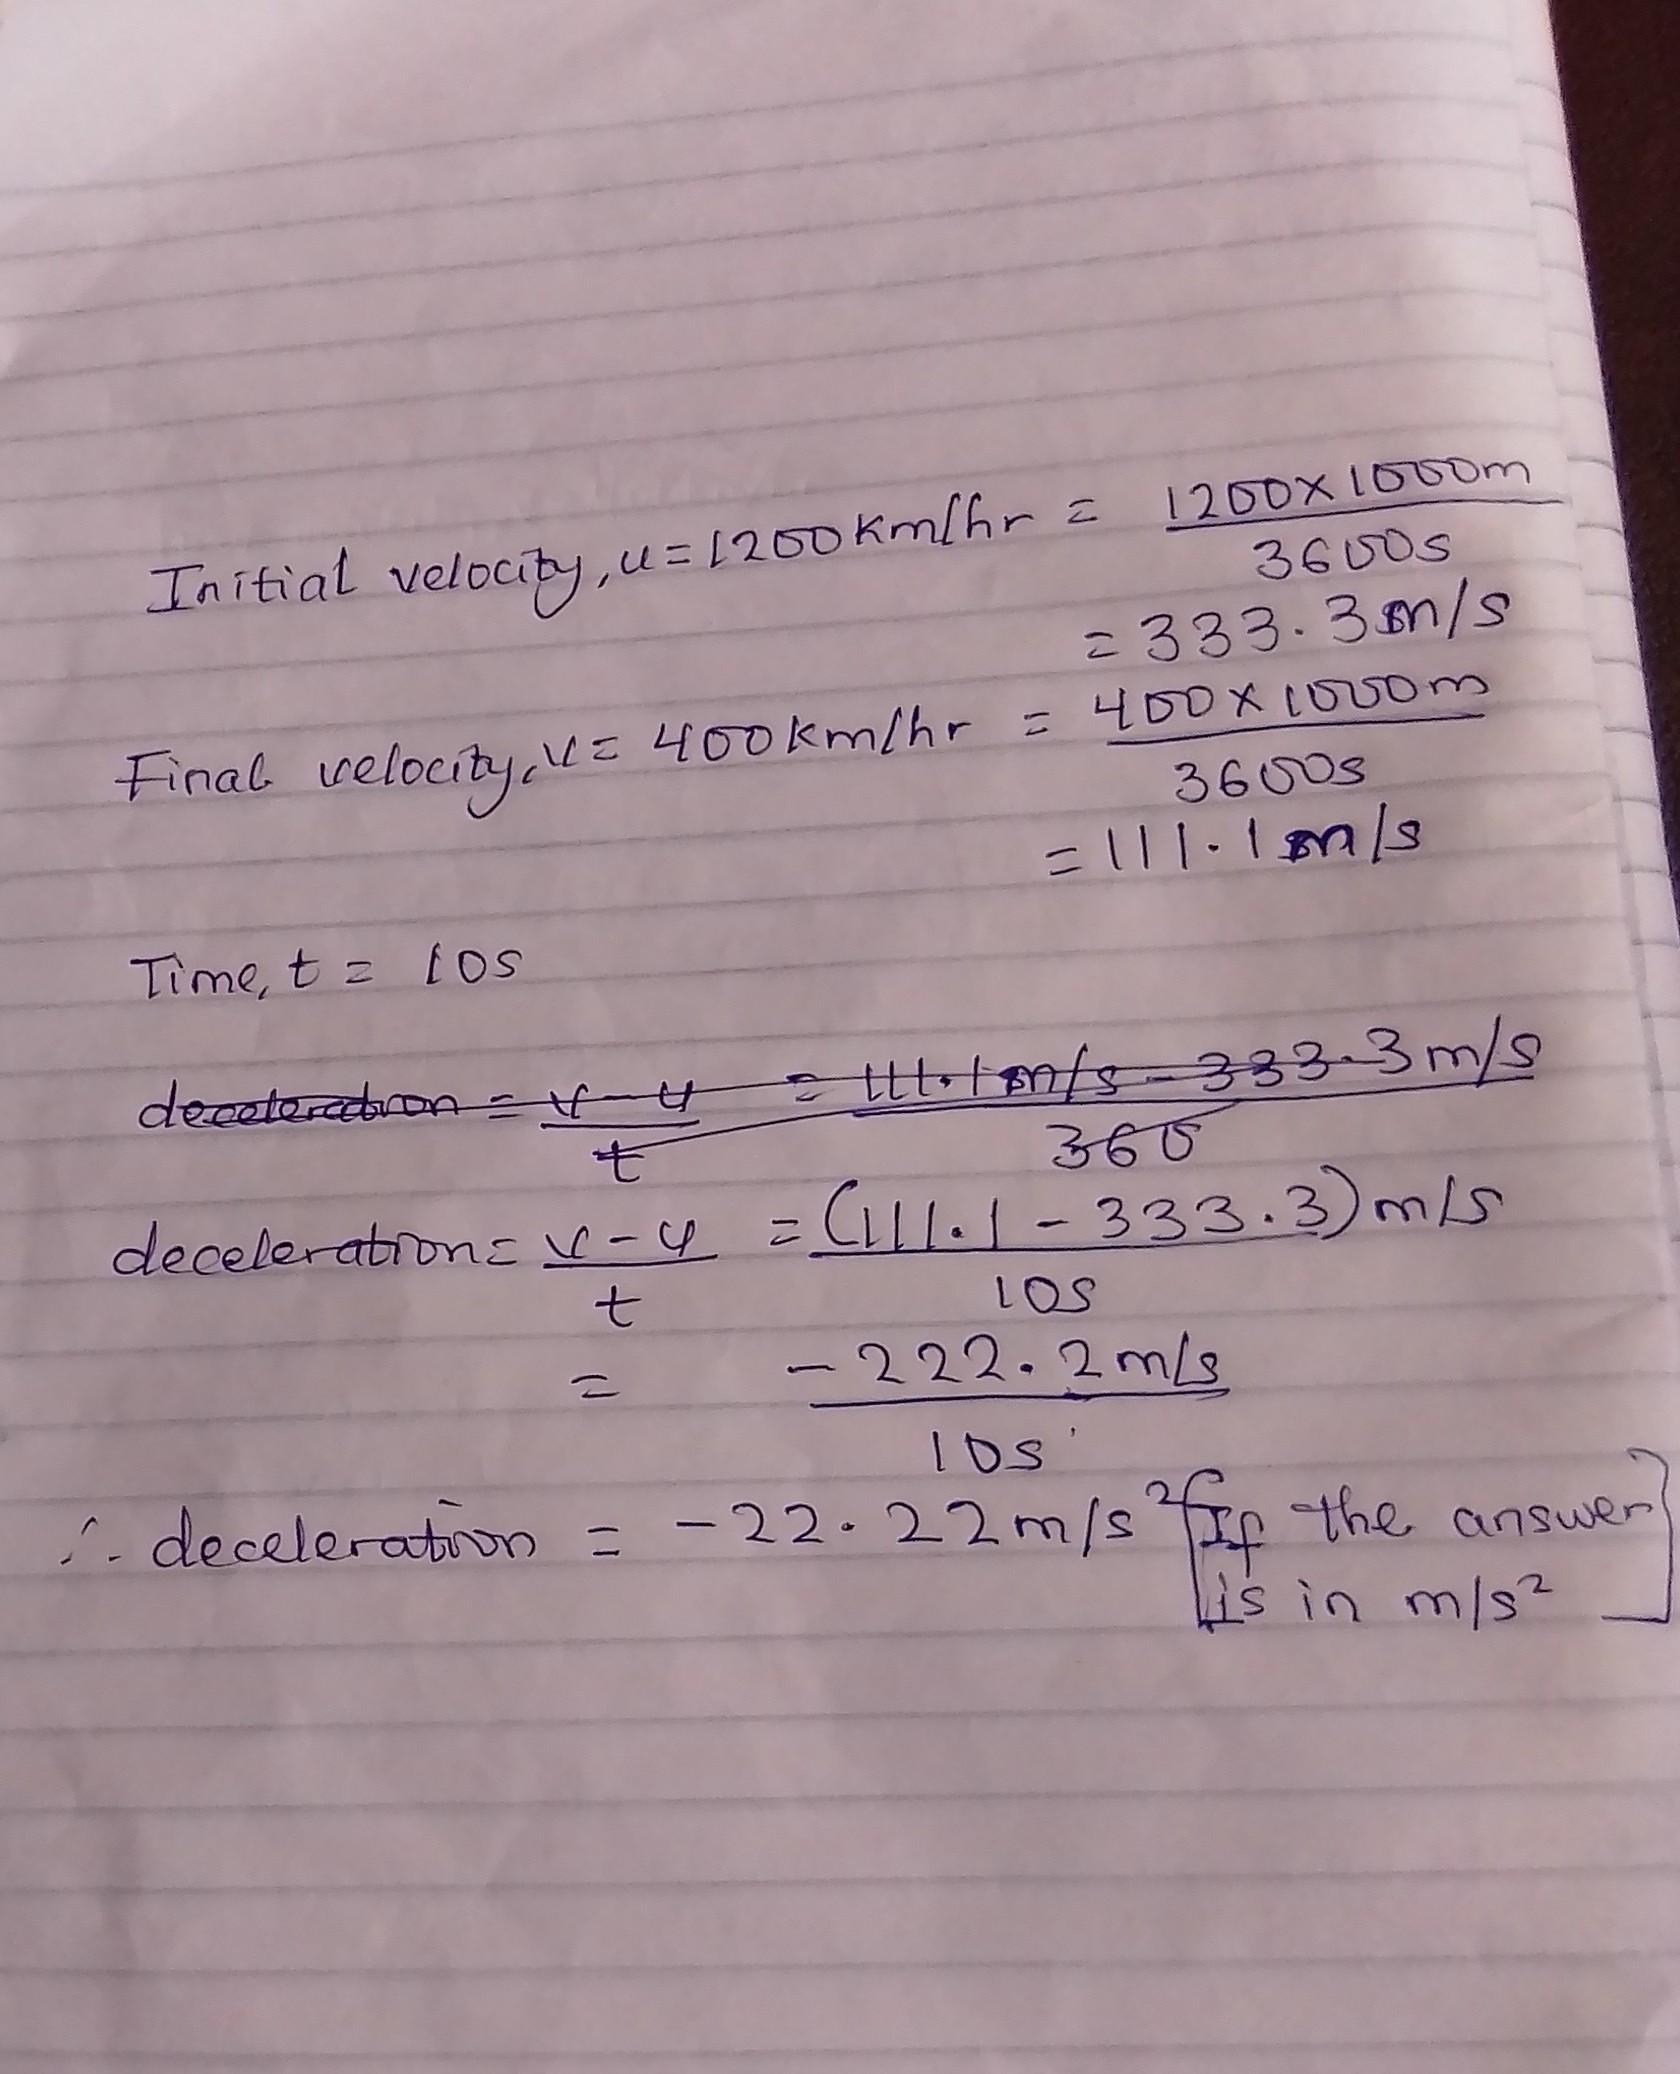 Initial velocity, u = 1200km/hr = 1200 x 1000m
3600s
= 333.3m/s
Final velocity, v = 400km/hr = 400 x 1000m
3600s
= 111.1m/s
Time, t = 10s
deceleration = v - u = 111.1m/s - 333.3m/s
t 360
deceleration = v - u = (111.1 - 333.3)m/s
t 10s
= -222.2m/s
10s
∴ deceleration = -22.22m/s² [If the answer
is in m/s²]